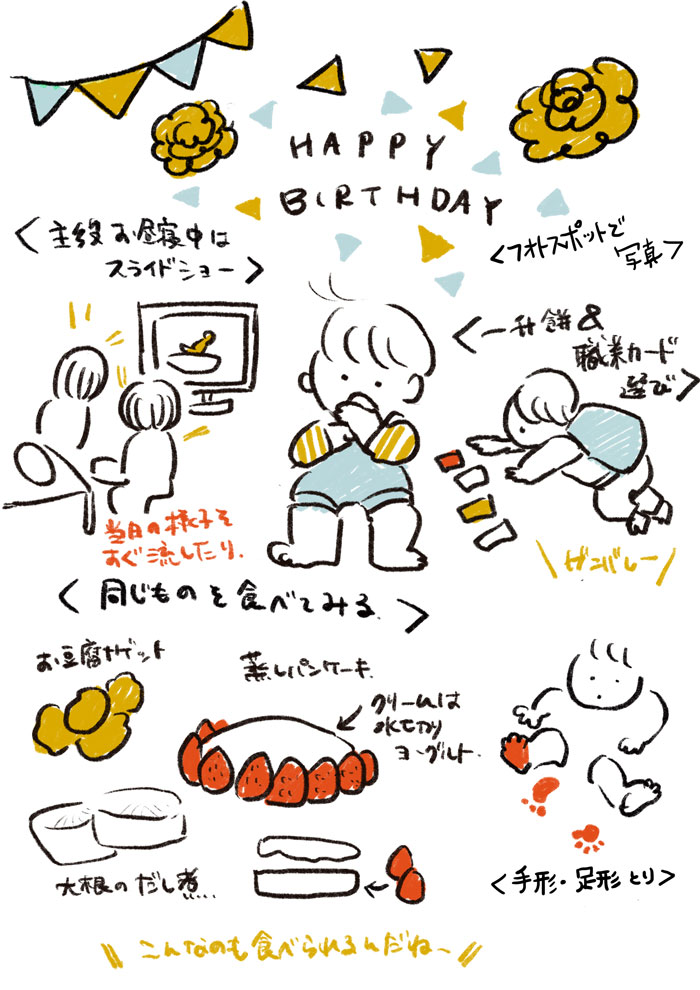 HAPPY
BIRTHDAY
<主役お昼寝中は
スライドショー>
<フォトスポットで
写真>
<一升餅&
職業カード
選び>
当日の様子を
すぐ流したり.
\ガンバレー/
<同じものを食べてみる.>
お豆腐ナゲット
蒸しパンケーキ.
クリームは
水切り
ヨーグルト.
大根のだし煮.....
<手形・足形とり>
\\こんなのも食べられるんだねー//